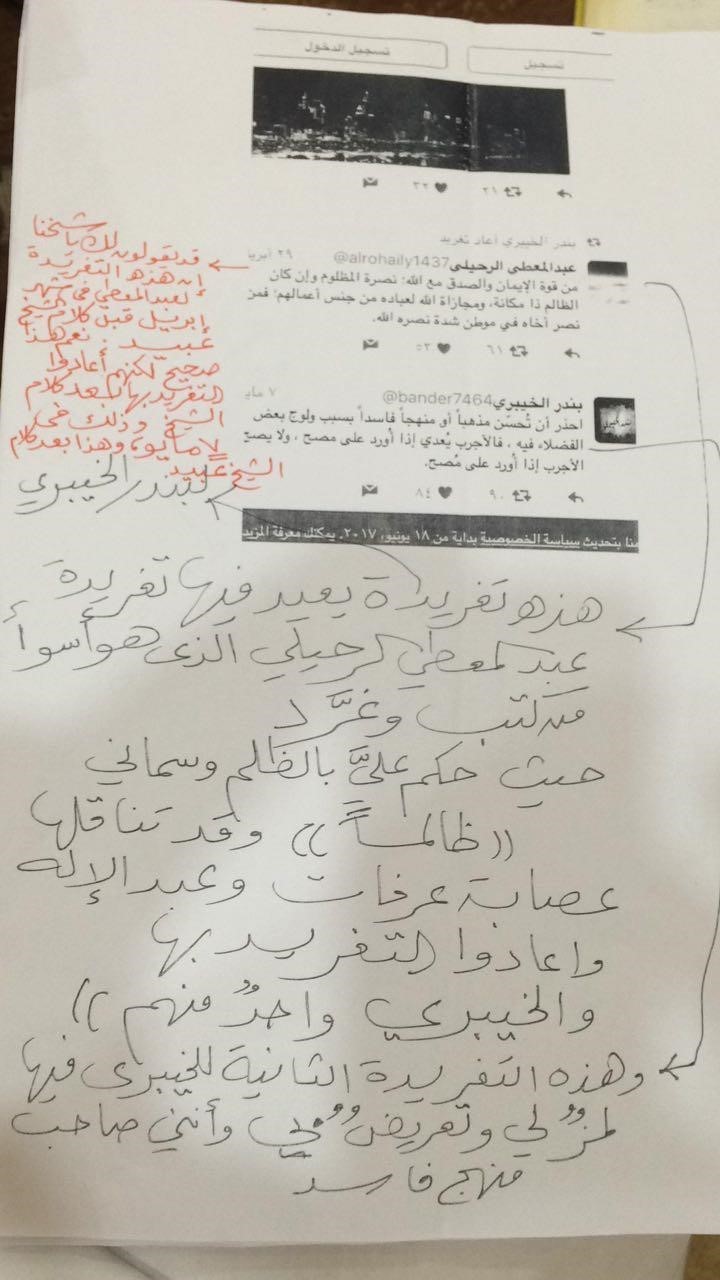 تسجيل الدخول
تسجيل
٢١ ٣٢
بندر الخيبري أعاد تغريد
عبدالمعطي الرحيلي @alrohaily1437 ٢٩ أبريل
من قوة الإيمان والصدق مع الله: نصرة المظلوم وإن كان
الظالم ذا مكانة، ومجازاة الله لعباده من جنس أعمالهم؛ فمن
نصر أخاه في موطن شدة نصره الله.
٦١ ٥٣
بندر الخيبري @bander7464 ٧ مايو
احذر أن تُحسّن مذهباً أو منهجاً فاسداً بسبب ولوج بعض
الفضلاء فيه ، فالأجرب يُعدي إذا أورد على مصح ، ولا يصح
الأجرب إذا أورد على مُصح.
٩٠ ٨٤
منا بتحديث سياسة الخصوصية بداية من ١٨ يونيو، ٢٠١٧. يمكنك معرفة المزيد
قد يقولون لك يا شيخنا
إن هذه التغريدة
لعبدالمعطي في شهر
إبريل قبل كلام الشيخ
عبيد . نعم هذا
صحيح لكنهم أعادوا
التغريد بها بعد كلام
الشيخ وذلك في
٧ مايو، وهذا بعد كلام
الشيخ عبيد
لبندر الخيبري
هذه تغريدة يعيد فيها تغريدة
عبد المعطي الرحيلي الذى هو أسوأ
من كتب وغرَّد
حيث حكم عليَّ بالظلم وسماني
((ظالمـاً)) وقد تناقلها
عصابة عرفات وعبد الإله
واعادوا التغريد بها
والخيبري واحدٌ منهم ))
وهذه التغريدة الثانية للخيبرى فيها
لمزٌ لي وتعريضٌ بي وأنني صاحب
منهج فاسد